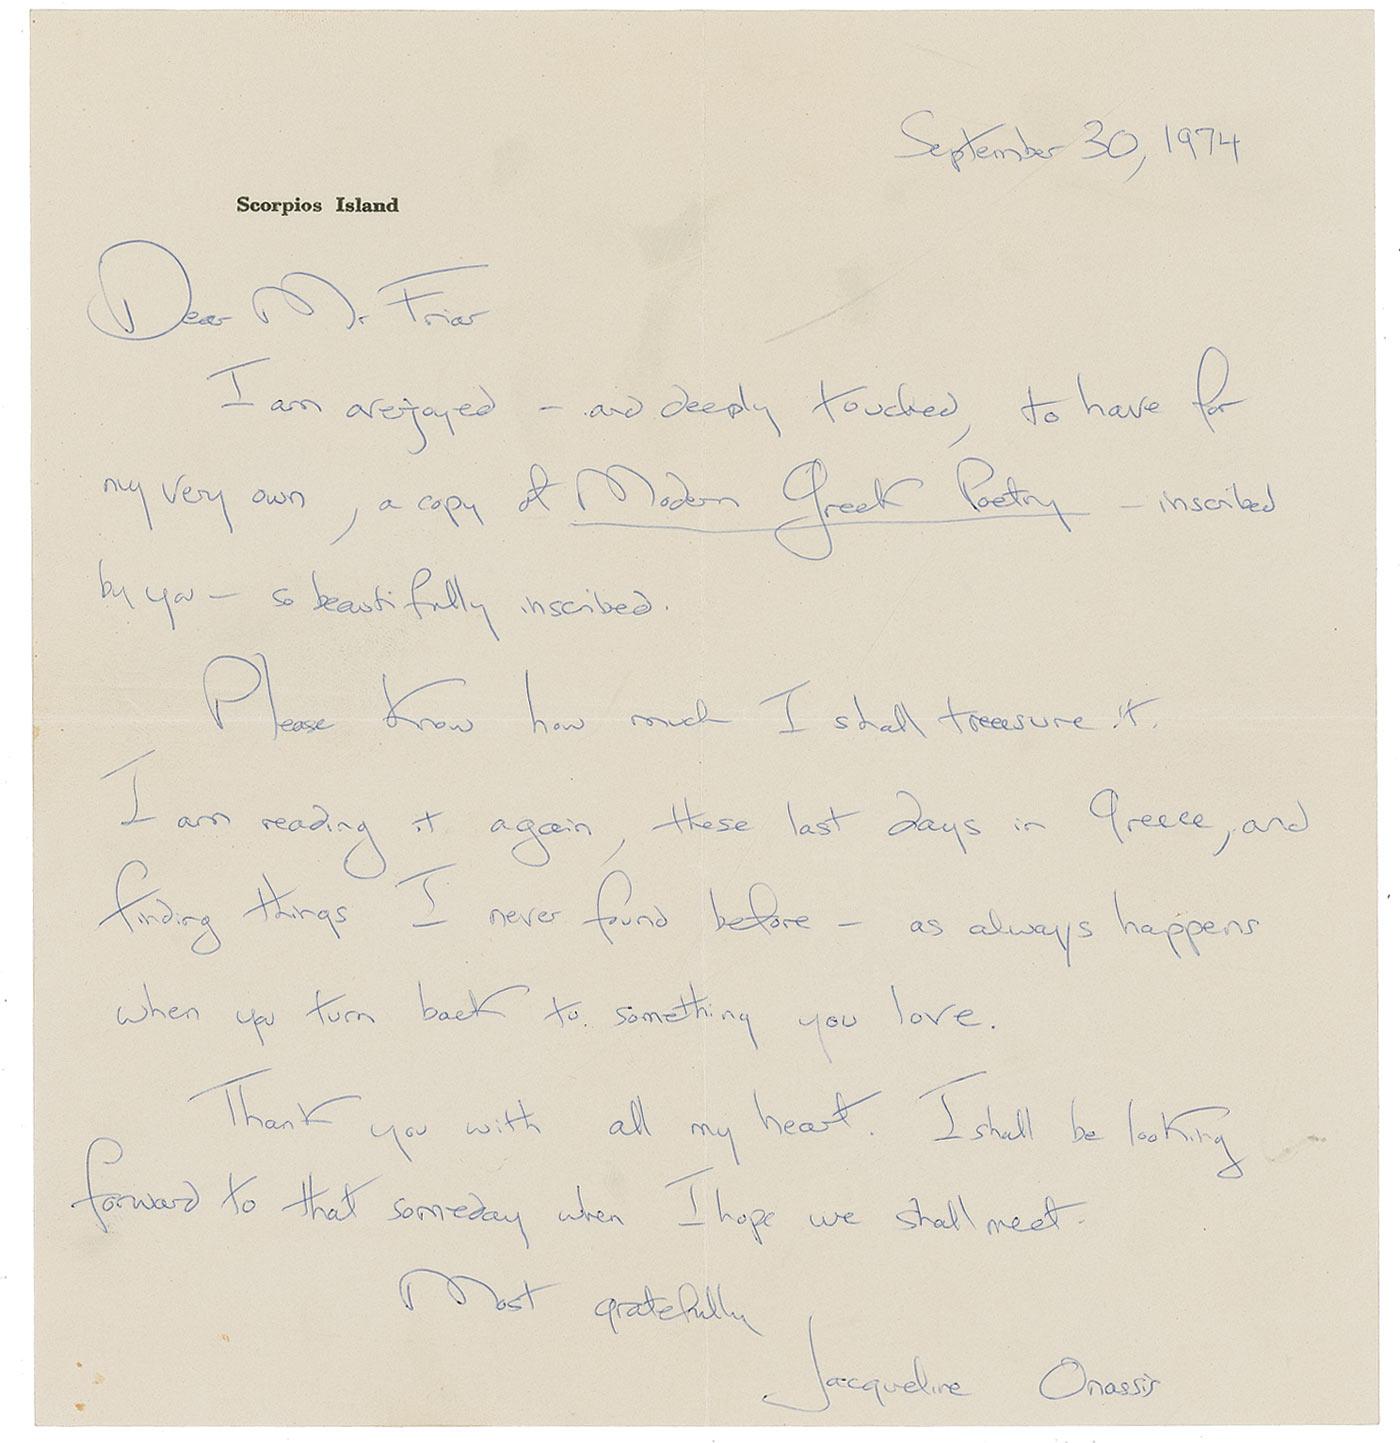 September 30, 1974
Scorpios Island
Dear Mr Friar
I am overjoyed – and deeply touched, to have for
my very own, a copy of Modern Greek Poetry – inscribed
by you – so beautifully inscribed.
Please know how much I shall treasure it.
I am reading it again, these last days in Greece, and
finding things I never found before – as always happens
when you turn back to something you love.
Thank you with all my heart. I shall be looking
forward to that someday when I hope we shall meet.
Most gratefully
Jacqueline Onassis